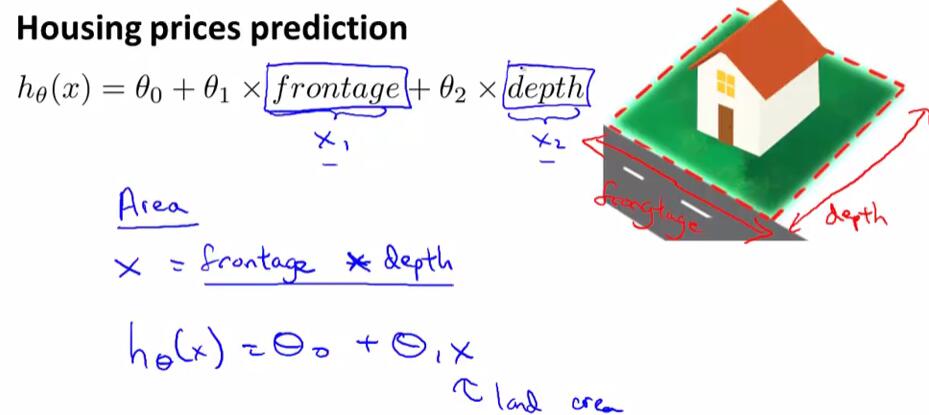 Housing prices prediction
hθ(x) = θ0 + θ1 × frontage + θ2 × depth
x1 x2
frongtage
depth
Area
x = frontage * depth
hθ(x) = θ0 + θ1 x
land area